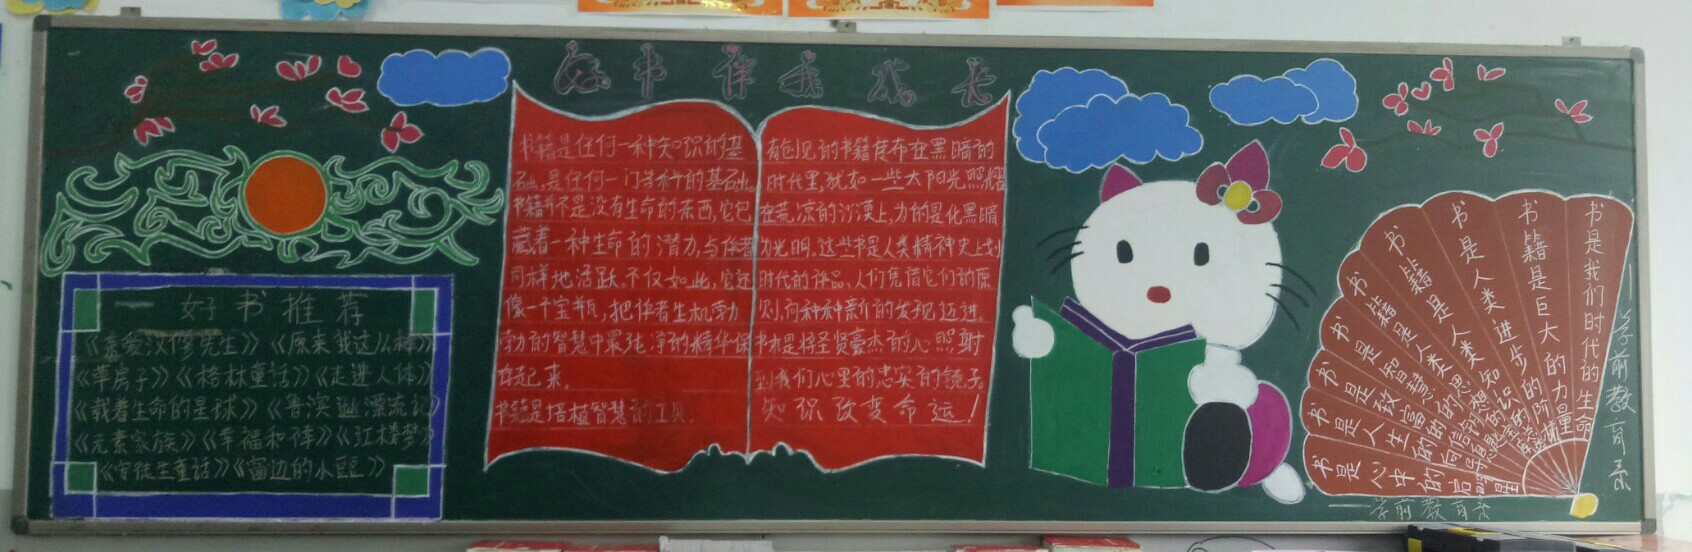 好书伴我成长
好书推荐
《亲爱汉修先生》《原来我这么棒》
《草房子》《格林童话》《走进人体》
《载着生命的星球》《鲁滨逊漂流记》
《元素家族》《幸福和祥》《红楼梦》
《安徒生童话》《窗边的小豆豆》
书籍是任何一种知识的基
础,是任何一门学科的基础。
书籍并不是没有生命的东西,它包
藏着一种生命的潜力,与作者
同样地活跃。不仅如此,它还
像一个宝瓶,把作者生机勃
勃的智慧中最纯净的精华保
存起来。
书籍是培植智慧的工具.
有创见的书籍传布在黑暗的
时代里,犹如一些太阳光照耀
在荒凉的沙漠上,为的是化黑暗
为光明。这些书是人类精神史上划
时代的作品,人们凭借它们的原
则,向种种新的发现迈进。
书本是将圣贤豪杰的心照射
到我们心里的忠实的镜子。
知识改变命运!
书是我们时代的生命
书籍是巨大的力量
书是人类进步的阶梯
书籍是人类知识的
书籍是人类思想的
书是智慧的
书是致富的信息
书是人生的向导
书是心中的启明星
——学前教育系
——学前教育系